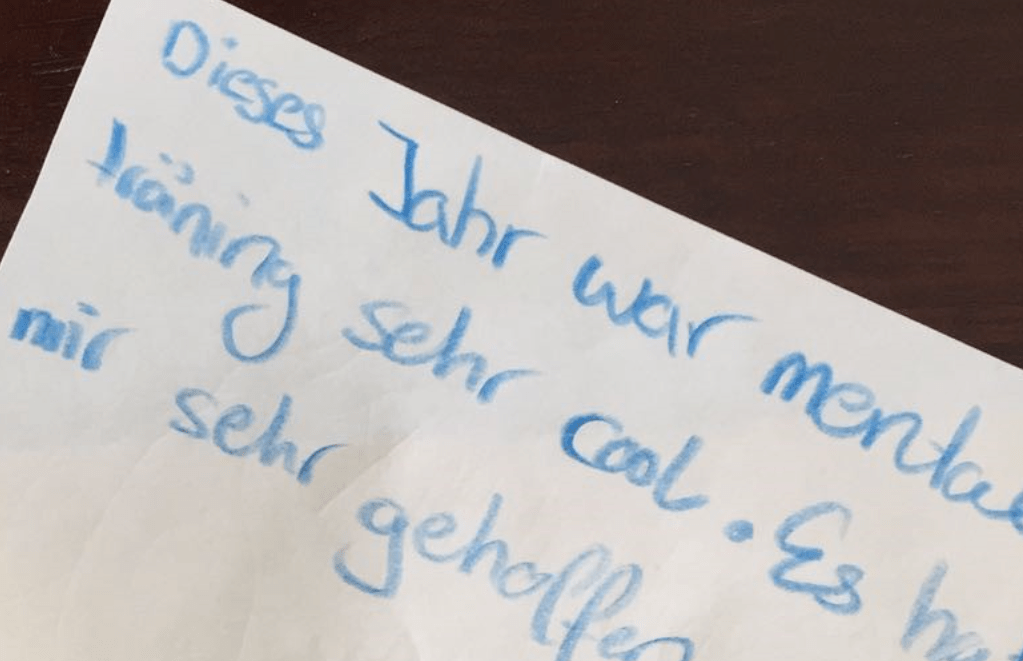 Dieses Jahr war mental
träning sehr cool. Es hat
mir sehr gehoffen